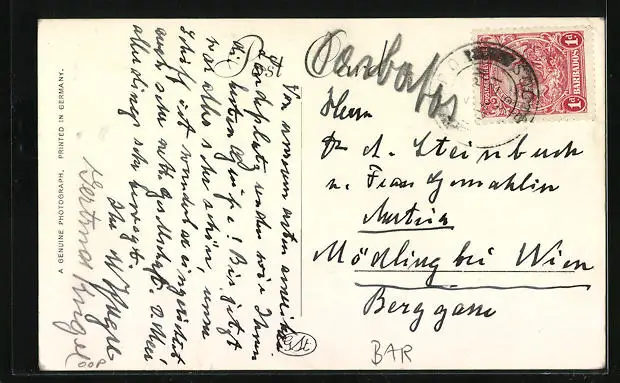 A GENUINE PHOTOGRAPH. PRINTED IN GERMANY.
Post Card
Barbados
1d BARBADOS 1d
Von unserem ersten
Landeplatz senden wir Ihnen
die Grüße! Bis jetzt
war alles sehr schön, unser
Schiff ist wunderbar eingerichtet
auch sehr nette Gesellschaft.
allerdings sehr bewegt.
Ihr
Gertrud
Herrn
Dr. A. Steinbuch
u. Frau Gemahlin
Austria
Mödling bei Wien
Berggasse
GSt
BAR